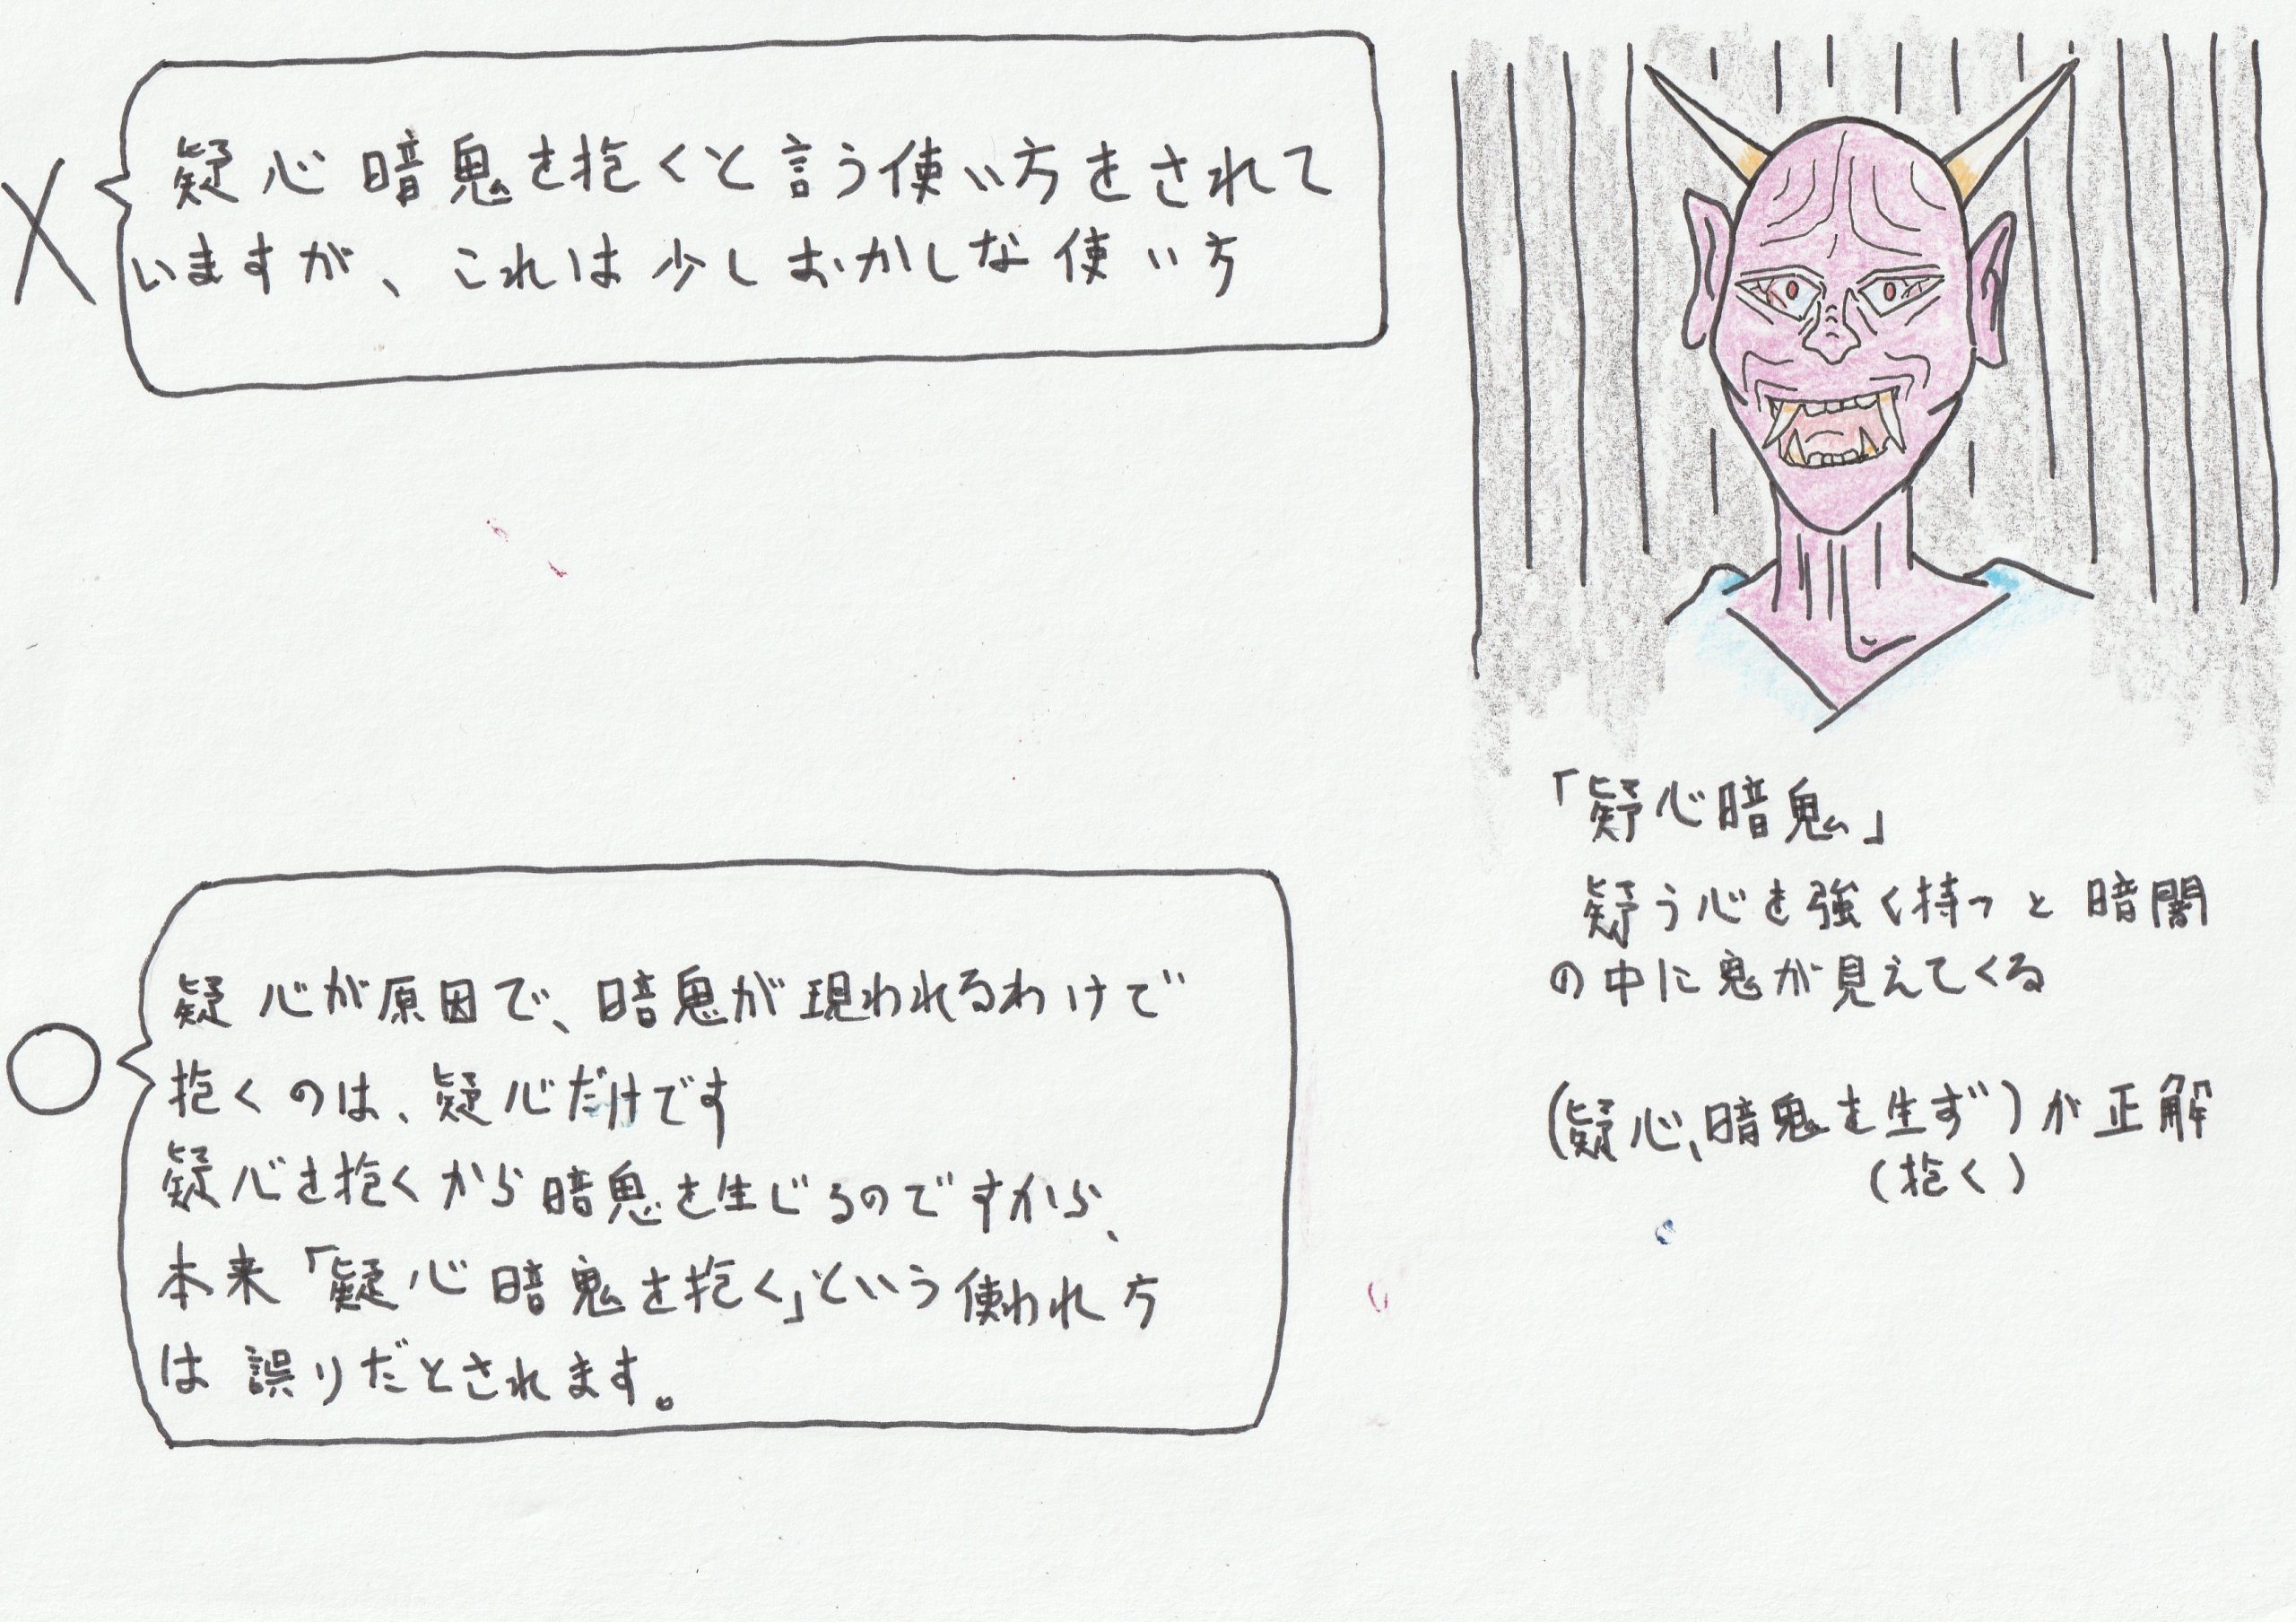 疑心暗鬼を抱くと言う使い方をされて
いますが、これは少しおかしな使い方
疑心が原因で、暗鬼が現われるわけで
抱くのは、疑心だけです
疑心を抱くから暗鬼を生じるのですから、
本来「疑心暗鬼を抱く」という使われ方
は誤りだとされます。
「疑心暗鬼」
疑う心を強く持つと暗闇
の中に鬼が見えてくる
(疑心、暗鬼を生ず)が正解
(抱く)